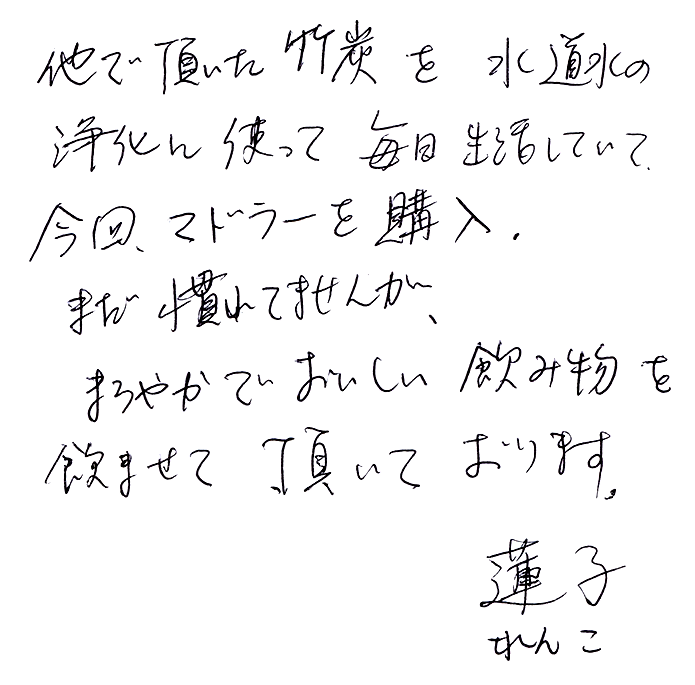 他で頂いた竹炭を水道水の
浄化に使って毎日生活していて、
今回、マドラーを購入.
まだ慣れてませんが、
まろやかでおいしい飲み物を
飲ませて頂いております。
蓮子
れんこ